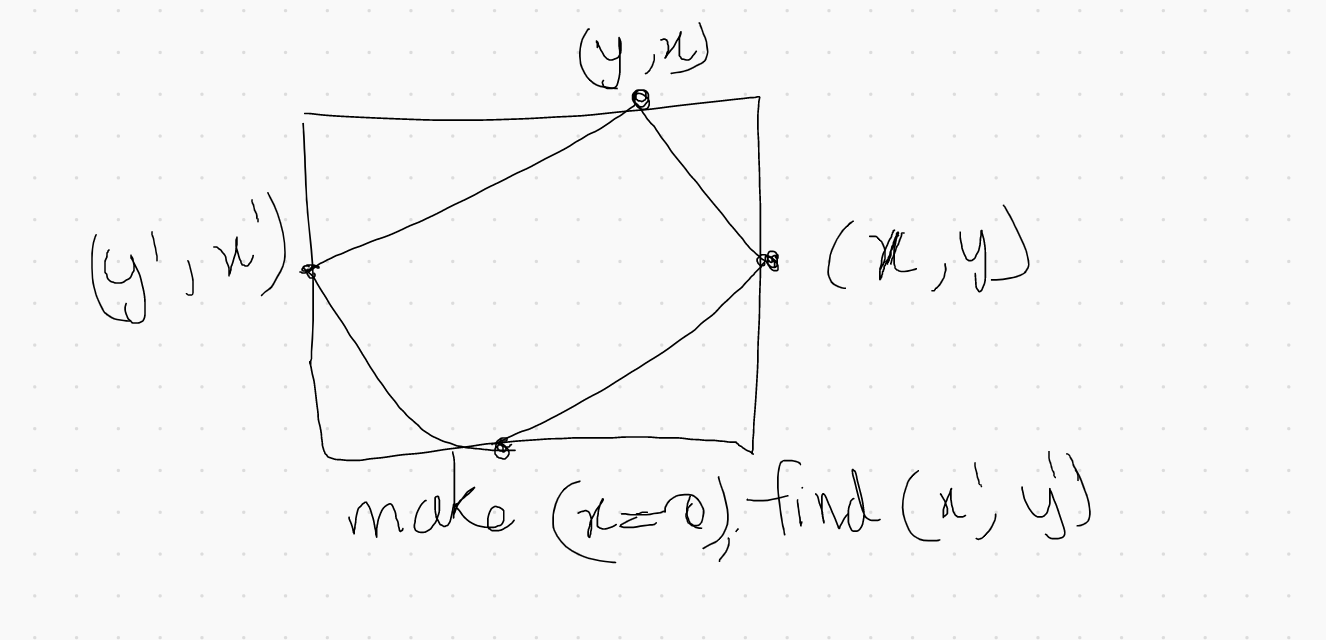 (y, x)
(y', x')
(x, y)
make (x=0), find (x', y')